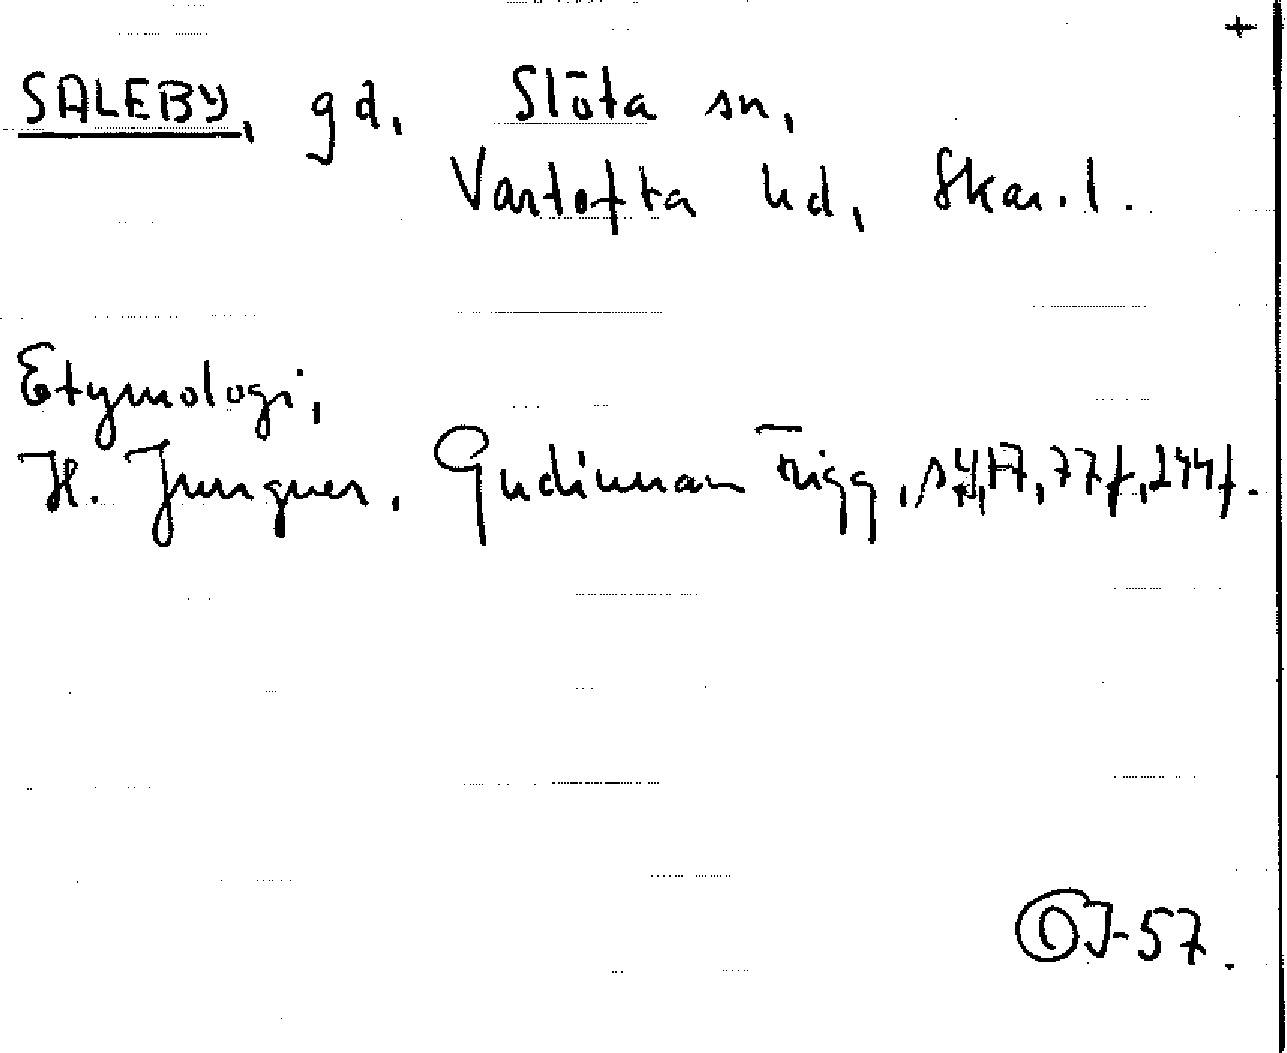 +
SALEBY, gd, Slöta sn,
Vartofta hd, Skar.l.
Etymologi,
H. Jungner, Gudinnan Frigg, s 9, 17, 77f, 244f.
OJ-57.